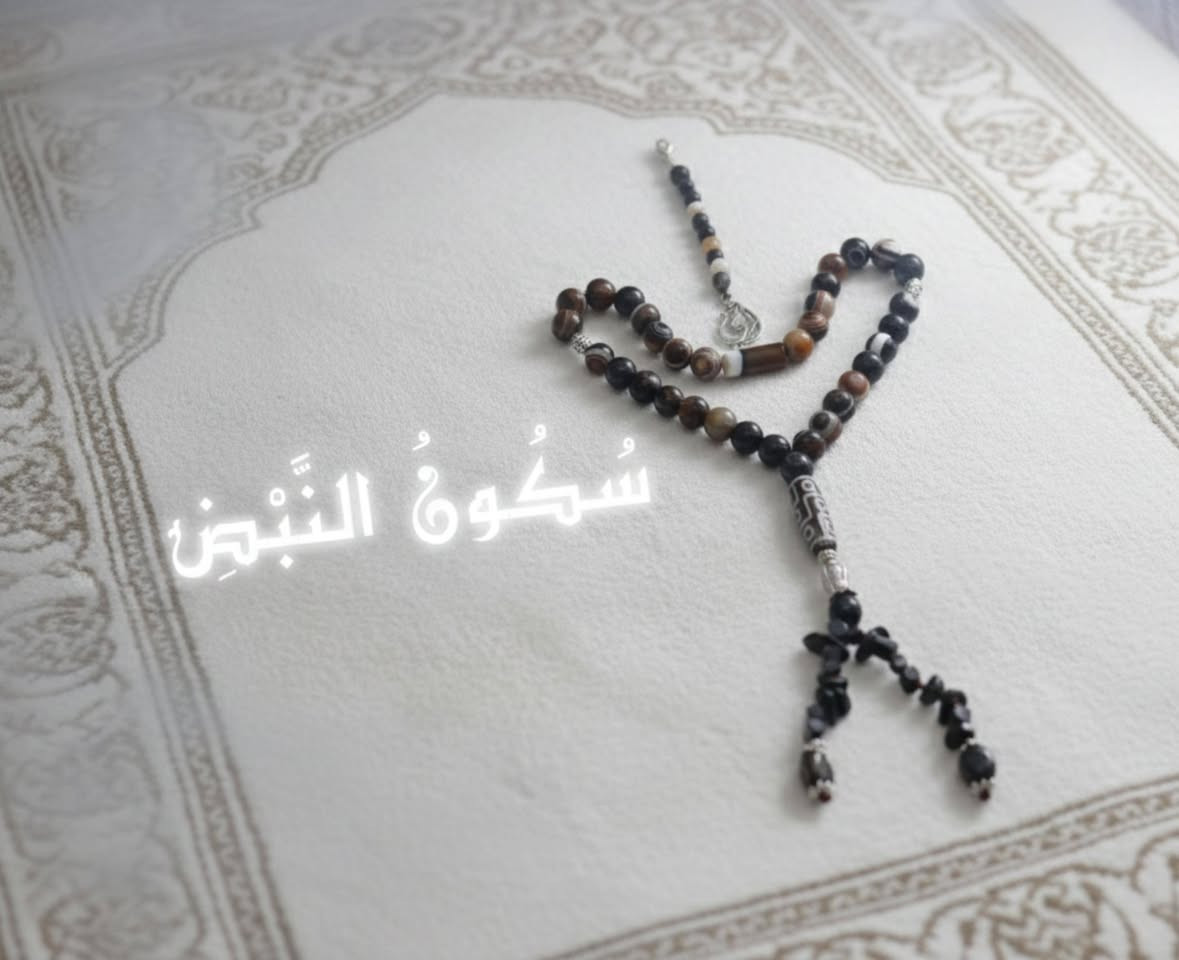 سُكُونُ النَّبْضِ